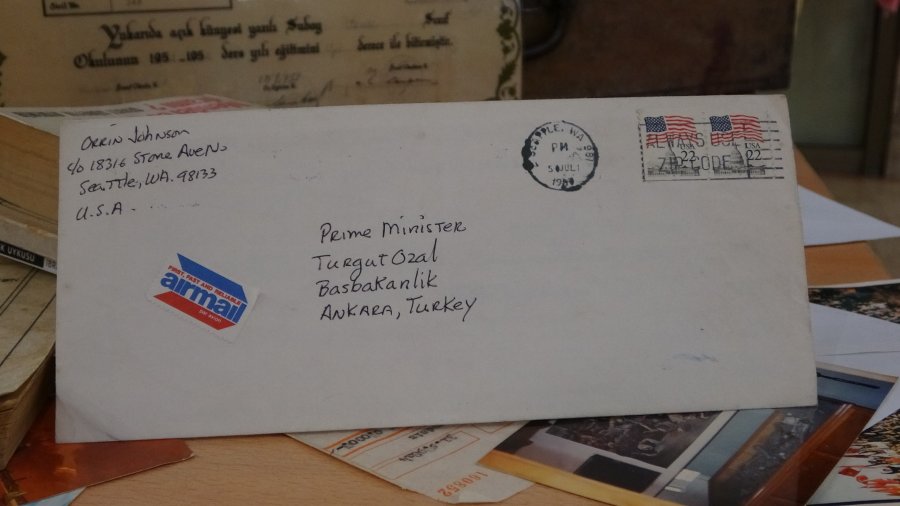 Yukarıda açık künyesi yazılı Subay Sınıf
Okulunun 195 -195 ders yılı eğitimini derece ile bitirmiştir.
Orrin Johnson
c/o 18316 Stone Ave No
Seattle, WA. 98133
U.S.A.
SEATTLE, WA 981
PM
5 JUL
ALWAYS USE
ZIP CODE
USA 22
USA 22
Prime Minister
Turgut Ozal
Basbakanlik
Ankara, Turkey
FIRST, FAST AND RELIABLE
airmail
par avion
UYKUSU
160852